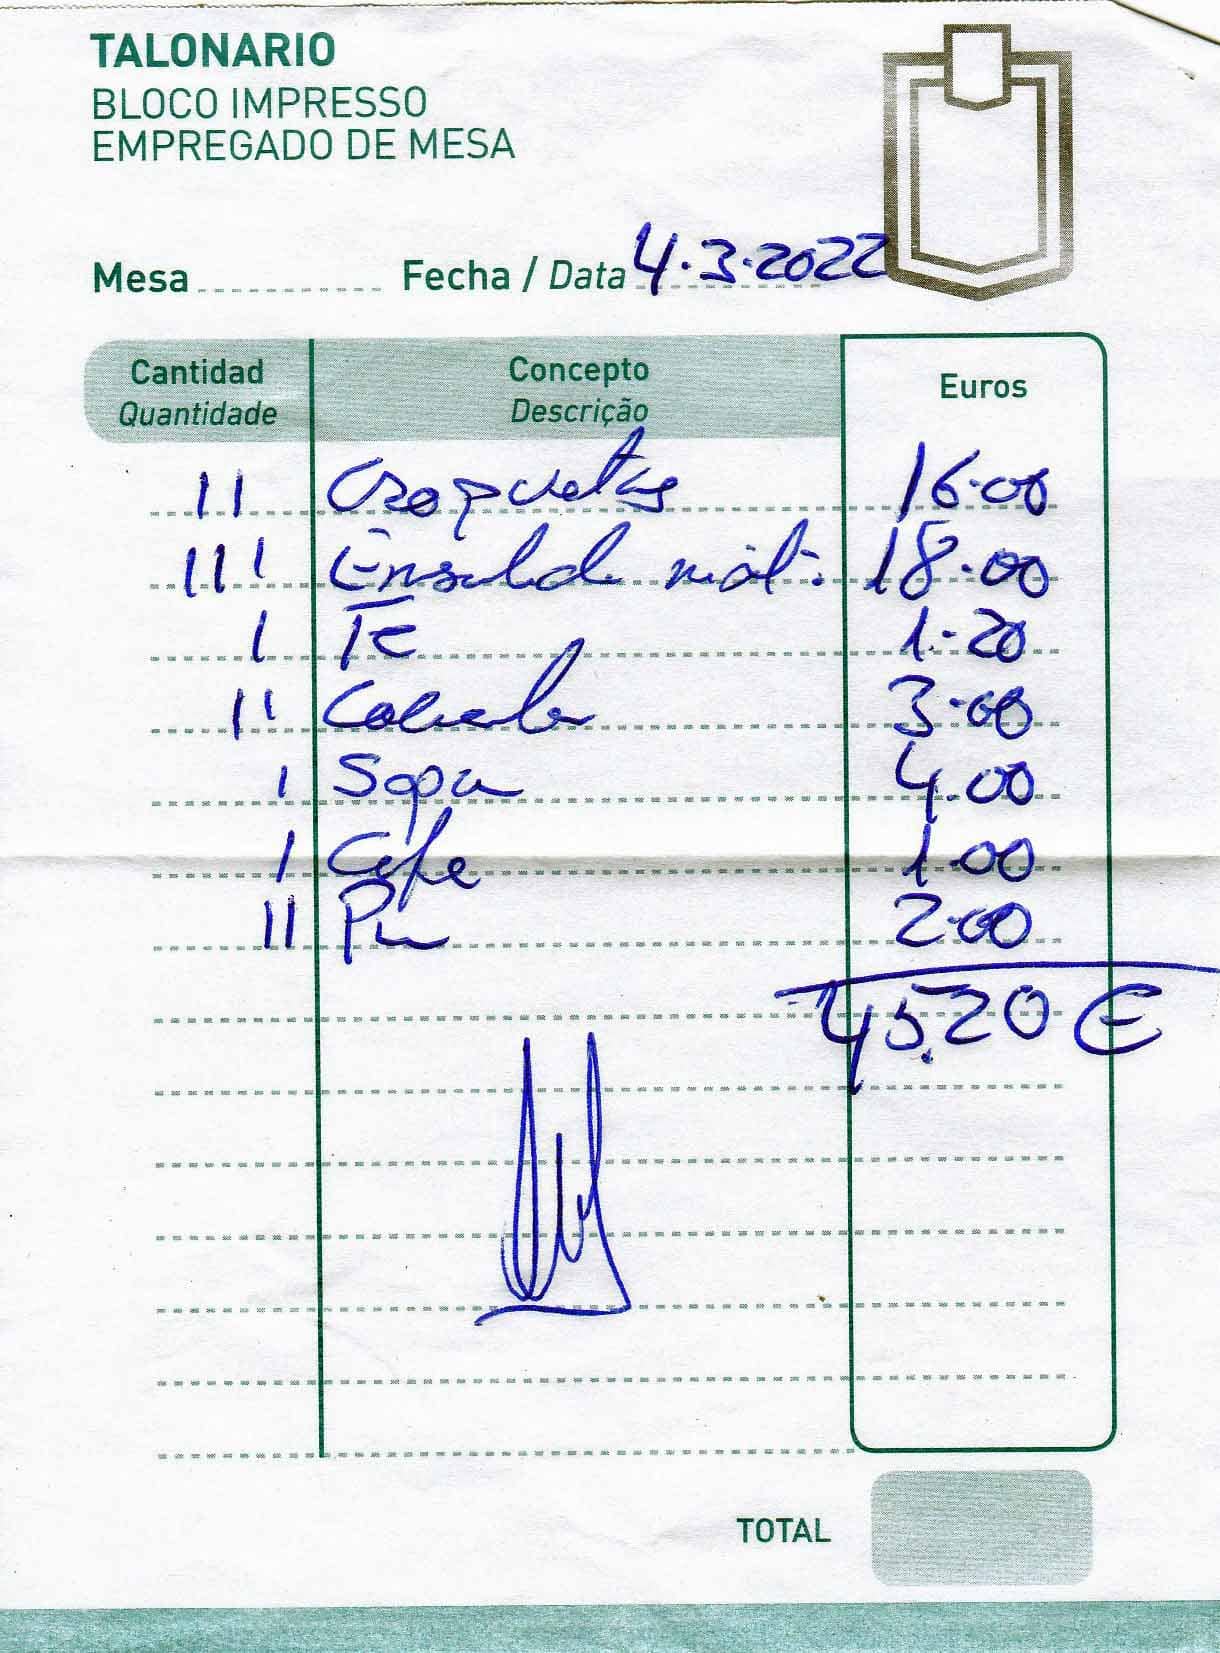 TALONARIO
BLOCO IMPRESSO
EMPREGADO DE MESA
Mesa Fecha / Data 4.3.2022
Cantidad Concepto Euros
Quantidade Descrição
11 Croquetas 16.00
111 Ensalada mixt. 18.00
1 Te 1.20
11 3.00
1 Sopa 4.00
1 Cafe 1.00
11 Pan 2.00
45.20 €
TOTAL